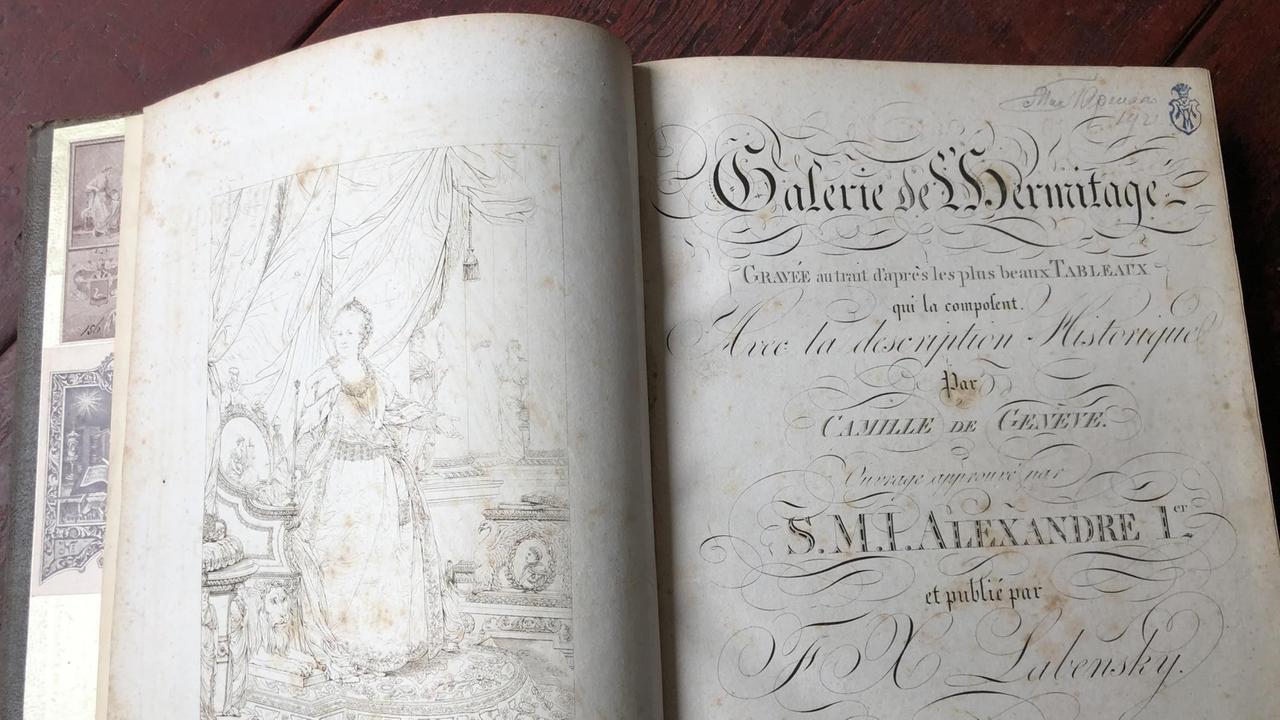 156
1921
Galerie de l'Hermitage
GRAVÉE au trait d'après les plus beaux TABLEAUX
qui la composent.
Avec la description Historique
Par
CAMILLE DE GENÈVE.
Ouvrage approuvé par
S.M.I. ALEXANDRE I.er
et publié par
F X Labensky.